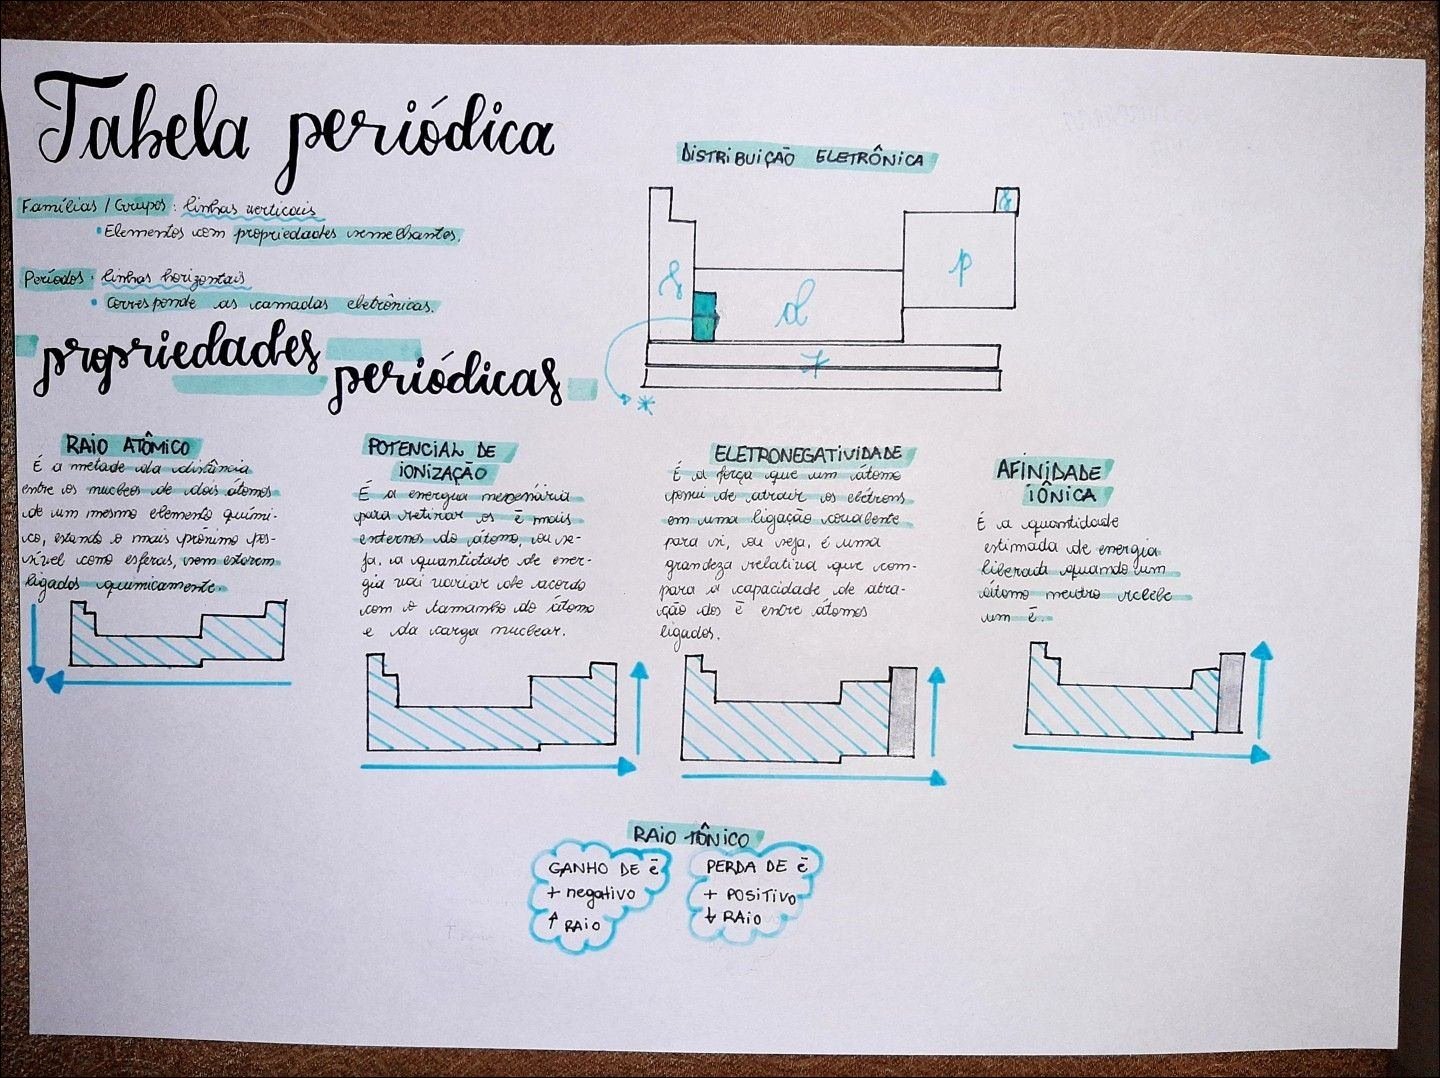 Tabela periódica
Famílias / Grupos: linhas verticais
• Elementos com propriedades semelhantes.
Períodos: linhas horizontais
• Corresponde as camadas eletrônicas.
DISTRIBUIÇÃO ELETRÔNICA
s
s
p
d
f
*
propriedades periódicas
RAIO ATÔMICO
É a metade da distância
entre os nucleos de dois átomos
de um mesmo elemento quími-
co, estando o mais próximo pos-
sível como esferas, sem estarem
ligados quimicamente.
POTENCIAL DE
IONIZAÇÃO
É a energia
para retirar os ē mais
externos do átomo, ou se-
ja, a quantidade de ener-
gia vai variar de acordo
com o tamanho do átomo
e da carga nuclear.
ELETRONEGATIVIDADE
É a força que um átomo
possui de atrair os elétrons
em uma ligação covalente
para si, ou seja, é uma
grandeza relativa que com-
para a capacidade de atra-
ção dos ē entre átomos
ligados.
AFINIDADE
IÔNICA
É a quantidade
estimada de energia
liberada quando um
átomo neutro recebe
um ē.
RAIO IÔNICO
GANHO DE ē
+ negativo
↑ RAIO
PERDA DE ē
+ POSITIVO
↓ RAIO